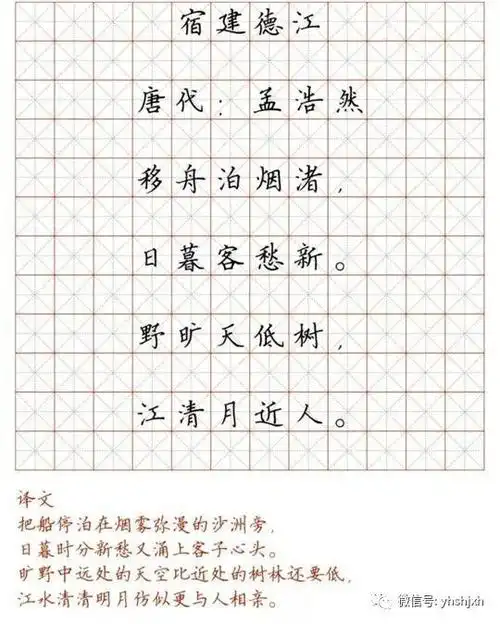 宿建德江
唐代：孟浩然
移舟泊烟渚，
日暮客愁新。
野旷天低树，
江清月近人。
译文
把船停泊在烟雾弥漫的沙洲旁，
日暮时分新愁又涌上客子心头。
旷野中远处的天空比近处的树林还要低，
江水清清明月仿似更与人相亲。
微信号: yhshjxh